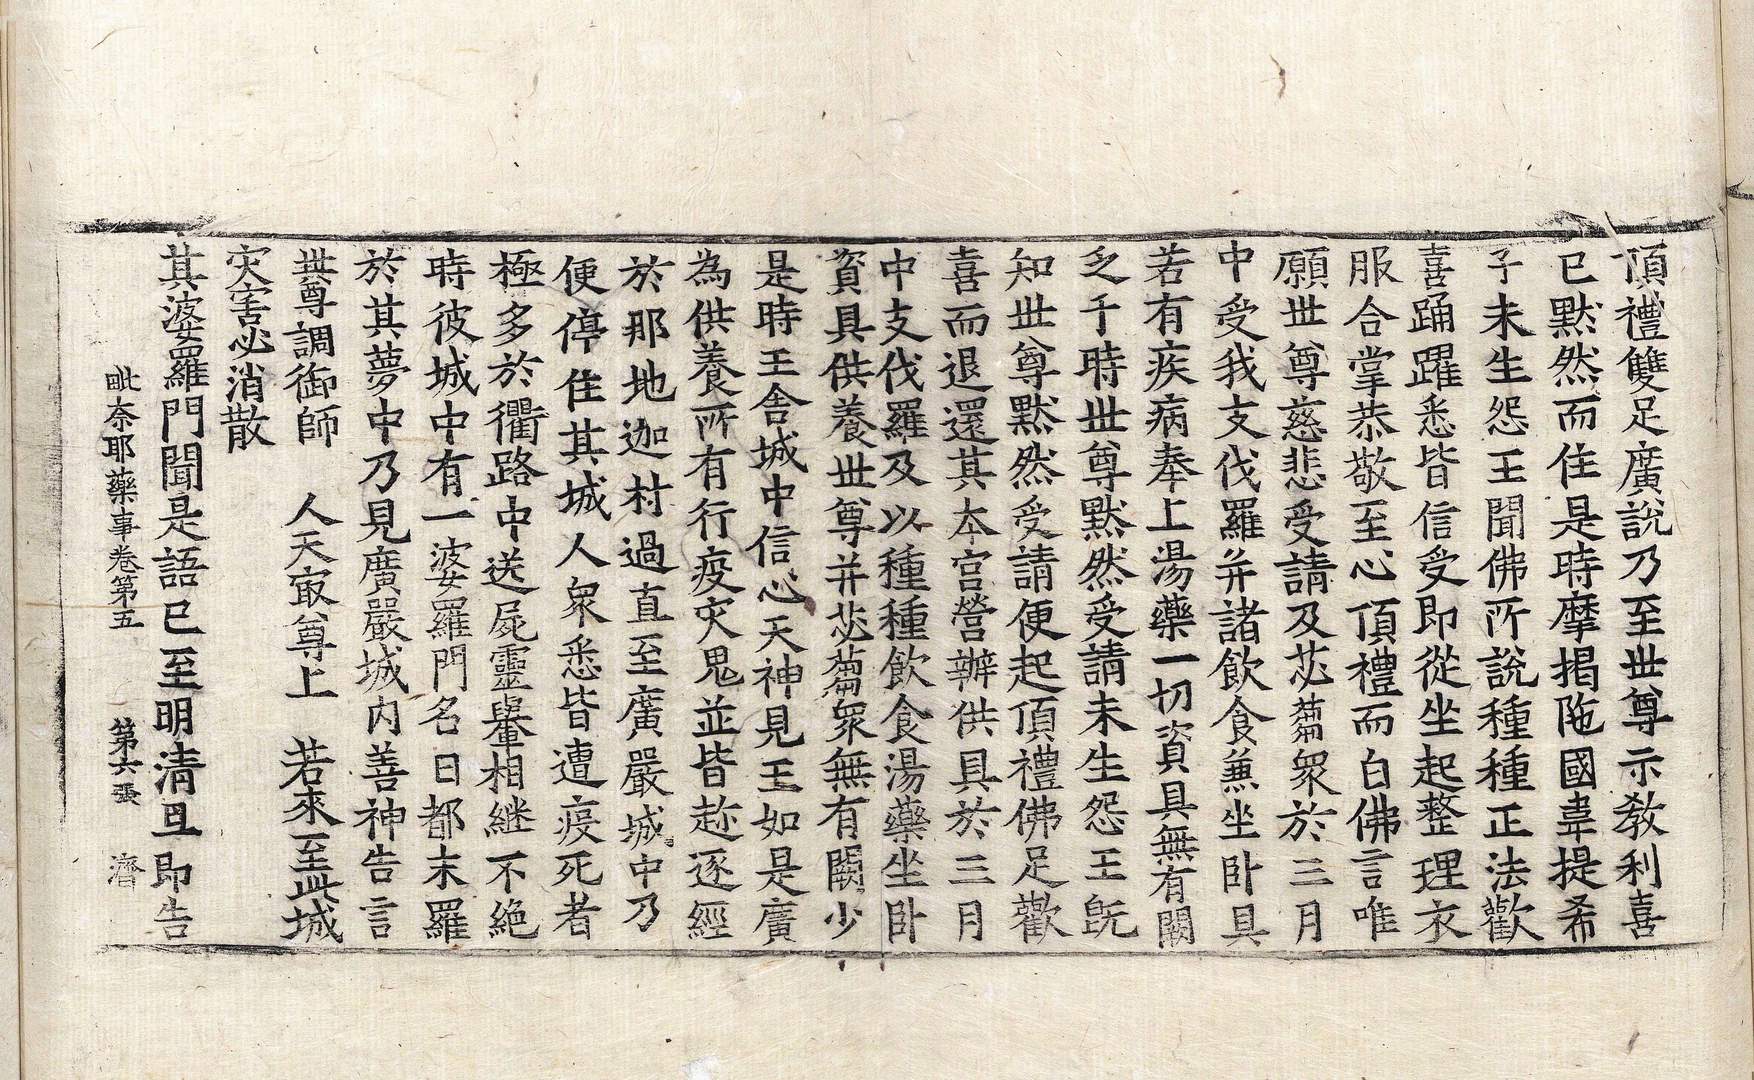 頂禮雙足廣說乃至世尊示教利喜
已默然而住是時摩揭陁國韋提希
子未生怨王聞佛所說種種正法歡
喜踊躍悉皆信受即從坐起整理衣
服合掌恭敬至心頂禮而白佛言唯
願世尊慈悲受請及苾蒭衆於三月
中受我支伐羅并諸飲食兼坐卧具
若有疾病奉上湯藥一切資具無有闕
乏于時世尊默然受請未生怨王旣
知世尊默然受請便起頂禮佛足歡
喜而退還其本宮營辦供具於三月
中支伐羅及以種種飲食湯藥坐卧
資具供養世尊并苾蒭衆無有闕少
是時王舍城中信心天神見王如是廣
為供養所有行疫灾鬼並皆趂逐經
於那地迦村過直至廣嚴城中乃
便停住其城人衆悉皆遭疫死者
極多於衢路中送屍靈轝相継不絶
時彼城中有一婆羅門名曰都末羅
於其夢中乃見廣嚴城内善神告言
世尊調御師　人天㝡尊上　若來至此城
灾害必消散
其婆羅門聞是語已至明清旦即告
毗奈耶藥事卷第五　第六張　濟